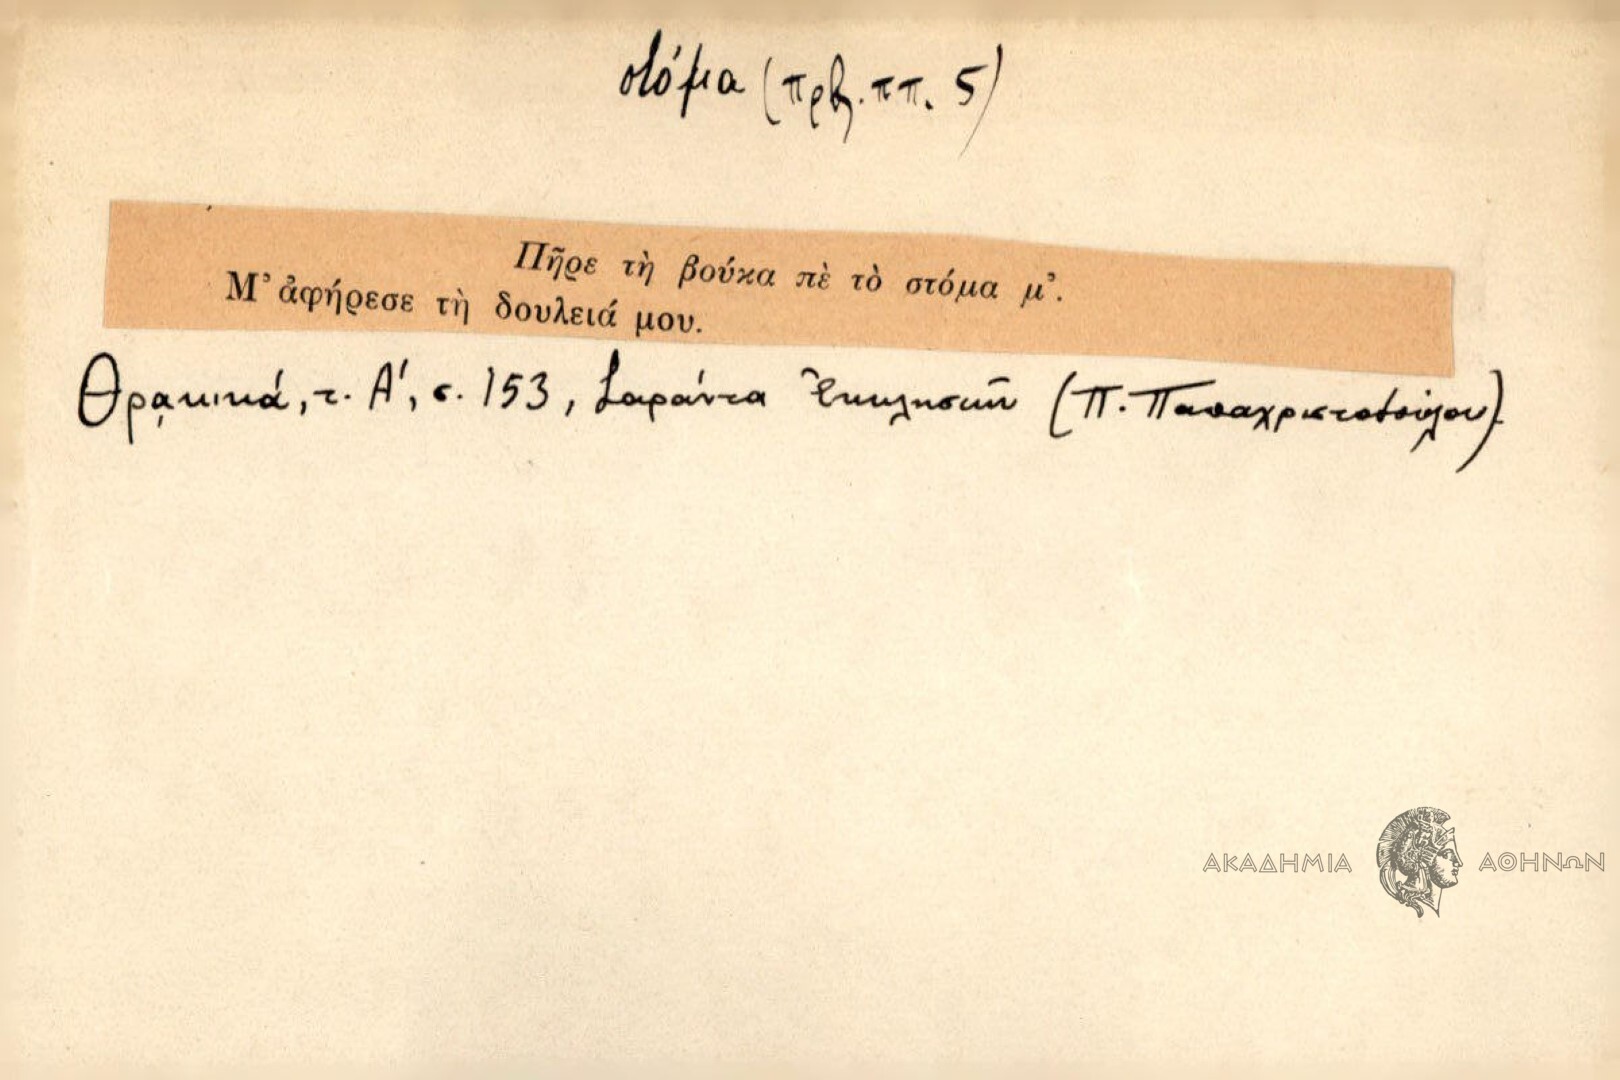 στόμα (πρβ. ππ. 5)
Πῆρε τὴ βούκα πὲ τὸ στόμα μ᾿.
Μ᾿ ἀφήρεσε τὴ δουλειά μου.
Θρακικά, τ. Α΄, σ. 153, Σαράντα Ἐκκλησιῶν (Π. Παπαχριστοδούλου).
ΑΚΑΔΗΜΙΑ ΑΘΗΝΩΝ